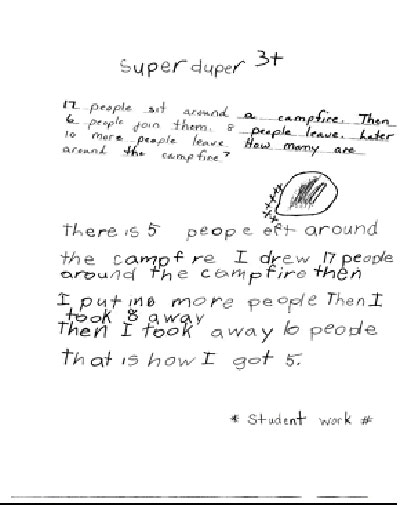 Super duper 3+
17 people sit around a campfire. Then
6 people join them. 8 people leave. Later
10 more people leave. How many are
around the campfire?
There is 5 people eft around
the campf re I drew 17 people
around the campfire then
I put in 6 more people Then I
took 8 away
Then I took away 10 people
That is how I got 5.
* Student work #